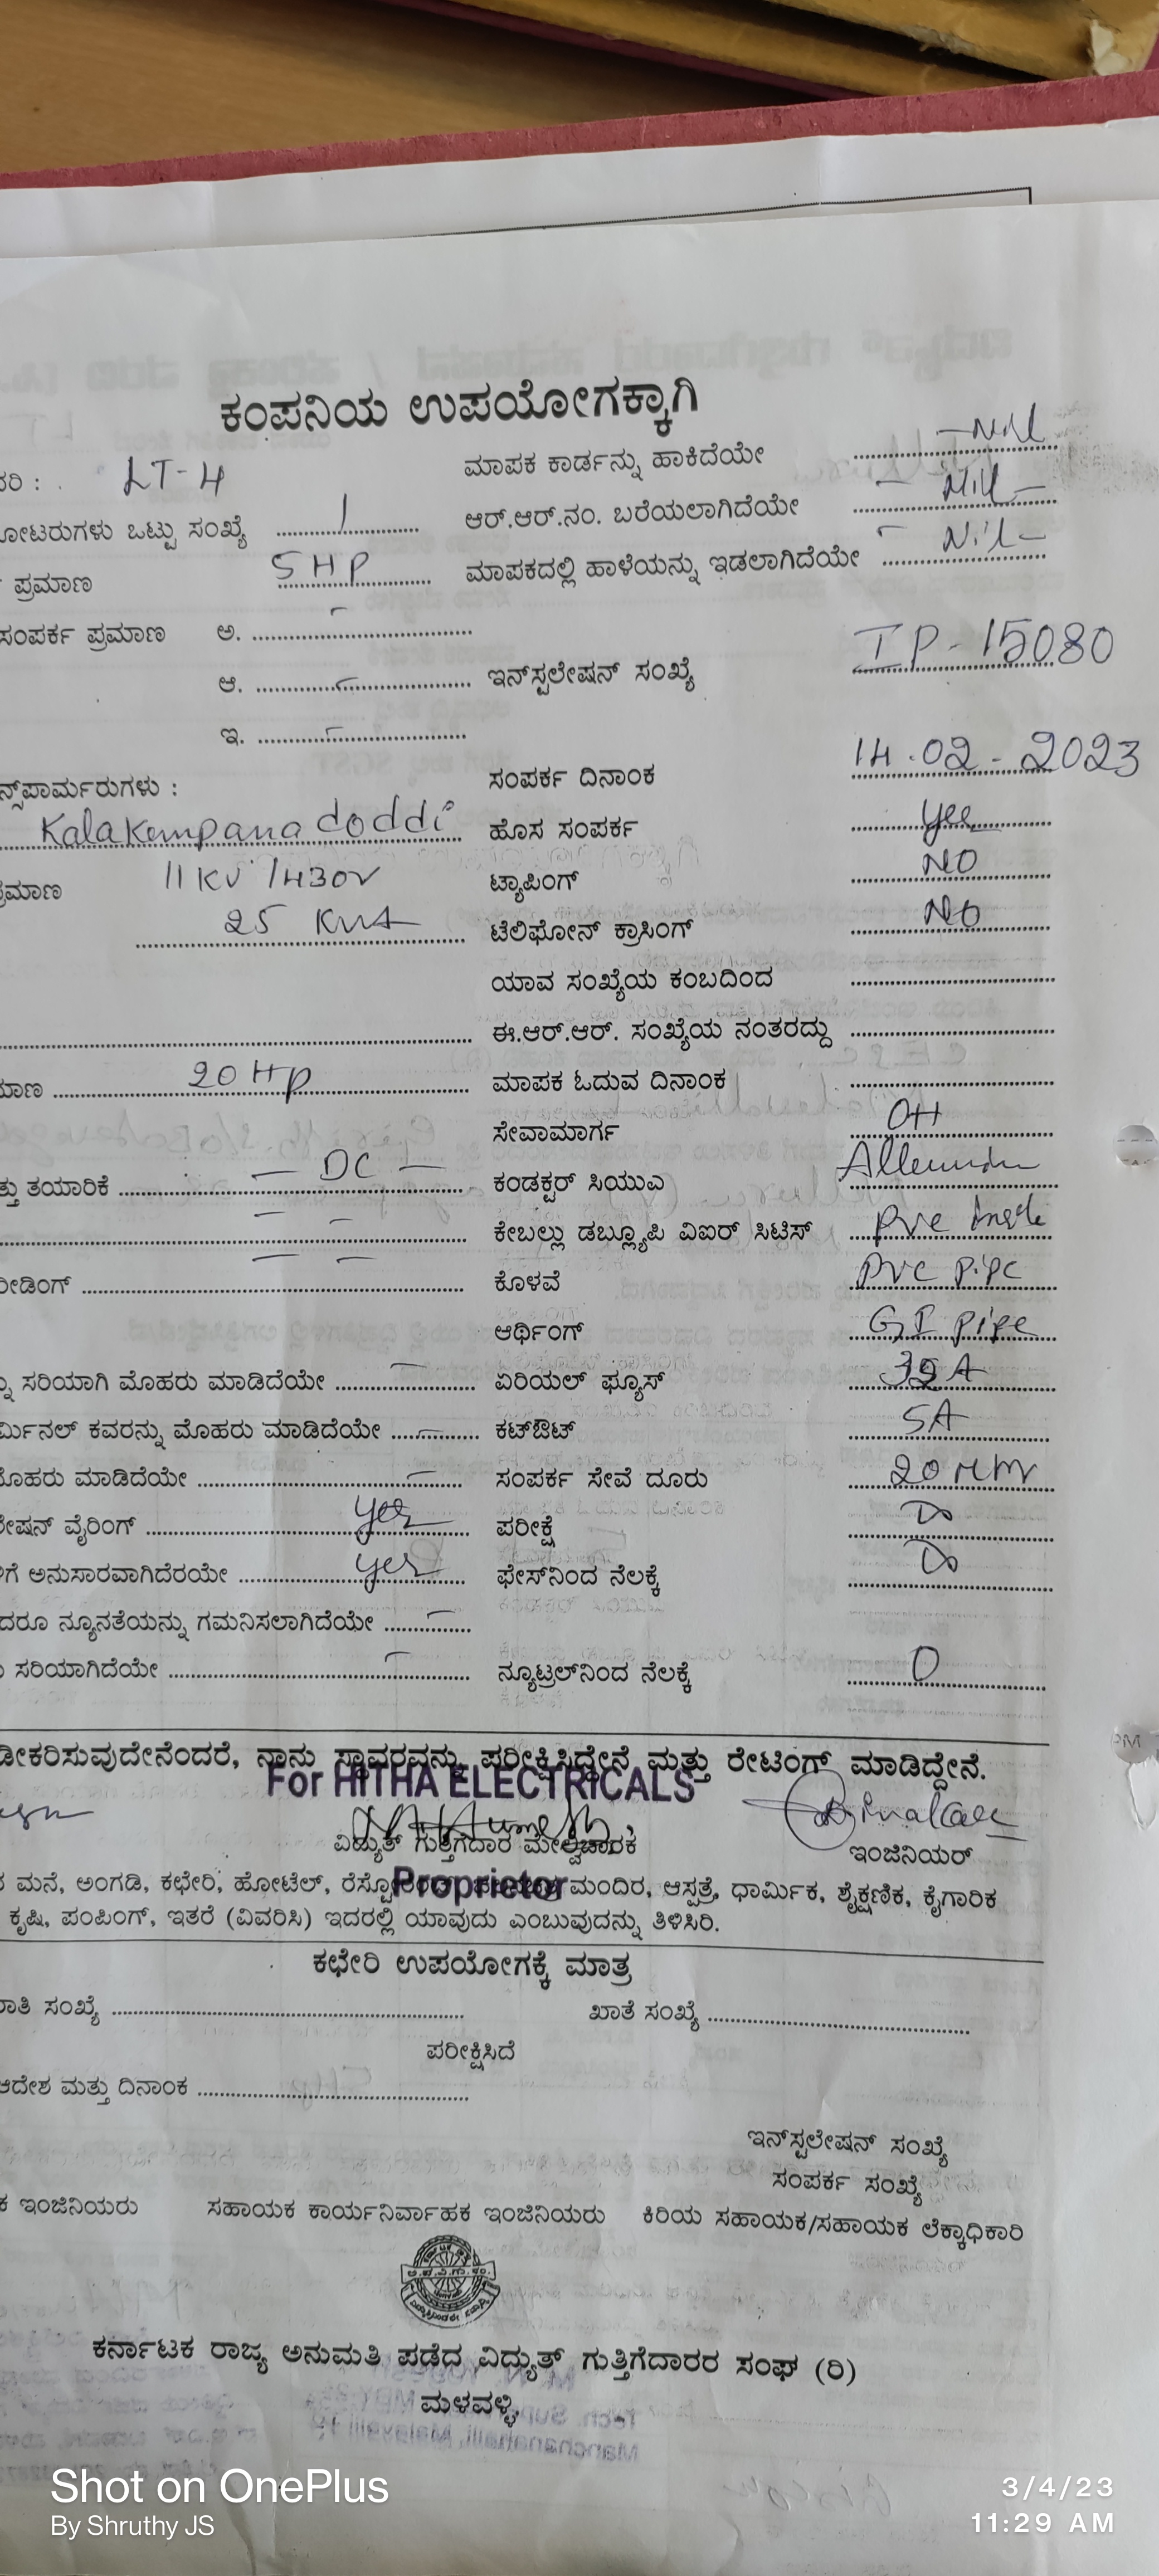 ಕಂಪನಿಯ ಉಪಯೋಗಕ್ಕಾಗಿ
LT-4 ಮಾಪಕ ಕಾರ್ಡನ್ನು ಹಾಕಿದೆಯೇ -Nil
ಒಟ್ಟು ಸಂಖ್ಯೆ 1 ಆರ್.ಆರ್.ನಂ. ಬರೆಯಲಾಗಿದೆಯೇ - Nil -
ಪ್ರಮಾಣ 5 HP ಮಾಪಕದಲ್ಲಿ ಹಾಳೆಯನ್ನು ಇಡಲಾಗಿದೆಯೇ - Nil -
ಸಂಪರ್ಕ ಪ್ರಮಾಣ ಅ. -
ಆ. - ಇನ್‌ಸ್ಟಲೇಷನ್ ಸಂಖ್ಯೆ IP-15080
ಇ. -
ನ್ಸ್‌ಪಾರ್ಮರುಗಳು : ಸಂಪರ್ಕ ದಿನಾಂಕ 14.02-2023
Kalakempana doddi ಹೊಸ ಸಂಪರ್ಕ yes
11 KV /430V ಟ್ಯಾಪಿಂಗ್ NO
25 KVA ಟೆಲಿಫೋನ್ ಕ್ರಾಸಿಂಗ್ NO
ಯಾವ ಸಂಖ್ಯೆಯ ಕಂಬದಿಂದ
ಈ.ಆರ್.ಆರ್. ಸಂಖ್ಯೆಯ ನಂತರದ್ದು
20 HP ಮಾಪಕ ಓದುವ ದಿನಾಂಕ
ಸೇವಾಮಾರ್ಗ OH
ತಯಾರಿಕೆ - DC - ಕಂಡಕ್ಟರ್ ಸಿಯುಎ
- - ಕೇಬಲ್ಲು ಡಬ್ಲ್ಯೂಪಿ ವಿಐರ್ ಸಿಟಿಸ್ PVC
ರೀಡಿಂಗ್ - - ಕೊಳವೆ PVC Pipe
ಆರ್ಥಿಂಗ್ GI pipe
ಸರಿಯಾಗಿ ಮೊಹರು ಮಾಡಿದೆಯೇ - ಏರಿಯಲ್ ಫ್ಯೂಸ್
ರ್ಮಿನಲ್ ಕವರನ್ನು ಮೊಹರು ಮಾಡಿದೆಯೇ - ಕಟ್‌ಔಟ್ 5A
ಮೊಹರು ಮಾಡಿದೆಯೇ - ಸಂಪರ್ಕ ಸೇವೆ ದೂರು 20
ಲೇಷನ್ ವೈರಿಂಗ್ yes ಪರೀಕ್ಷೆ
ಗೆ ಅನುಸಾರವಾಗಿದೆರಯೇ yes ಫೇಸ್‌ನಿಂದ ನೆಲಕ್ಕೆ
ದರೂ ನ್ಯೂನತೆಯನ್ನು ಗಮನಿಸಲಾಗಿದೆಯೇ -
ಸರಿಯಾಗಿದೆಯೇ - ನ್ಯೂಟ್ರಲ್‌ನಿಂದ ನೆಲಕ್ಕೆ 0
ಡೀಕರಿಸುವುದೇನೆಂದರೆ, ನಾನು ಸ್ಥಾವರವನ್ನು ಪರೀಕ್ಷಿಸಿದ್ದೇನೆ ಮತ್ತು ರೇಟಿಂಗ್ ಮಾಡಿದ್ದೇನೆ.
For HITHA ELECTRICALS
ವಿದ್ಯುತ್ ಗುತ್ತಿಗೆದಾರ ಮೇಲ್ವಿಚಾರಕ ಇಂಜಿನಿಯರ್
Proprietor
ಮನೆ, ಅಂಗಡಿ, ಕಛೇರಿ, ಹೋಟೆಲ್, ಮಂದಿರ, ಆಸ್ಪತ್ರೆ, ಧಾರ್ಮಿಕ, ಶೈಕ್ಷಣಿಕ, ಕೈಗಾರಿಕ
ಕೃಷಿ, ಪಂಪಿಂಗ್, ಇತರೆ (ವಿವರಿಸಿ) ಇದರಲ್ಲಿ ಯಾವುದು ಎಂಬುವುದನ್ನು ತಿಳಿಸಿರಿ.
ಕಛೇರಿ ಉಪಯೋಗಕ್ಕೆ ಮಾತ್ರ
ಸಂಖ್ಯೆ ಖಾತೆ ಸಂಖ್ಯೆ
ಪರೀಕ್ಷಿಸಿದೆ
ಆದೇಶ ಮತ್ತು ದಿನಾಂಕ
ಇನ್‌ಸ್ಟಲೇಷನ್ ಸಂಖ್ಯೆ
ಸಂಪರ್ಕ ಸಂಖ್ಯೆ
ಇಂಜಿನಿಯರು ಸಹಾಯಕ ಕಾರ್ಯನಿರ್ವಾಹಕ ಇಂಜಿನಿಯರು ಕಿರಿಯ ಸಹಾಯಕ/ಸಹಾಯಕ ಲೆಕ್ಕಾಧಿಕಾರಿ
ಕರ್ನಾಟಕ ರಾಜ್ಯ ಅನುಮತಿ ಪಡೆದ ವಿದ್ಯುತ್ ಗುತ್ತಿಗೆದಾರರ ಸಂಘ (ರಿ)
ಮಳವಳ್ಳಿ
Shot on OnePlus
By Shruthy JS
3/4/23
11:29 AM